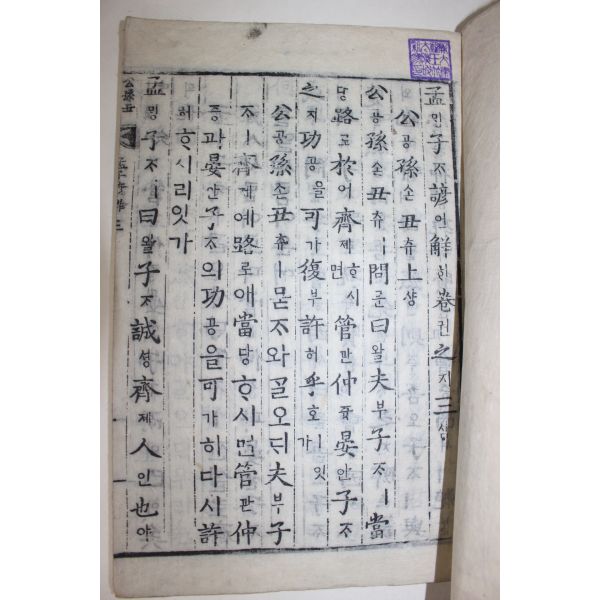 孟ᄆᆡᆼ子ᄌᆞ諺언解ᄒᆡ卷권之지三삼
公공孫손丑튜上샹
公공孫손丑튜ㅣ問문曰왈夫부子ᄌᆞㅣ當
당路로於어齊졔ᄒᆞ시면管관仲듕晏안子ᄌᆞ
之지功공을可가復부許허乎호ㅣ잇가
公공孫손丑튜ㅣ묻ᄌᆞ와ᄀᆞᆯ오ᄃᆡ夫부子
ᄌᆞㅣ齊졔예路로애當당ᄒᆞ시면管관仲
듕과晏안子ᄌᆞ의功공을可가히다시許
허ᄒᆞ시리잇가
孟ᄆᆡᆼ子ᄌᆞㅣ曰왈子ᄌᆞ誠셩齊졔人인也야
公孫丑